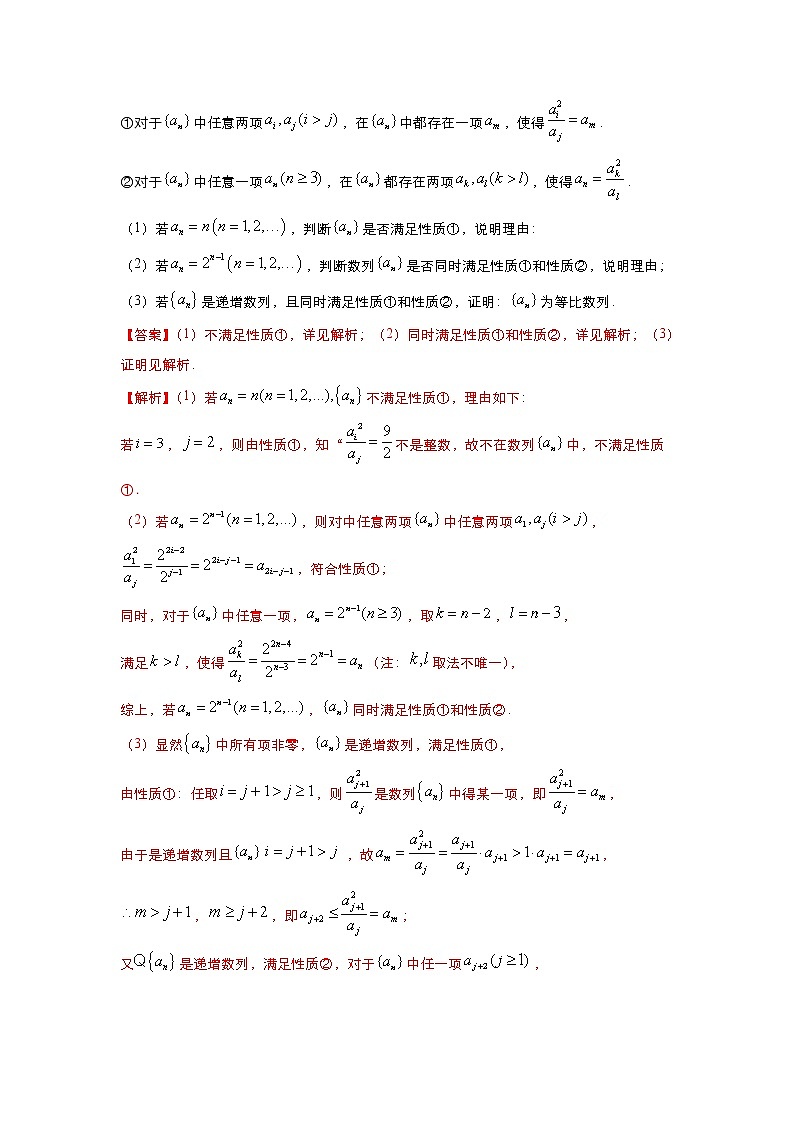 ①对于{aₙ}中任意两项aᵢ,aⱼ(i>j)，在{aₙ}中都存在一项aₘ，使得aᵢ²/aⱼ=aₘ.
②对于{aₙ}中任意一项aₙ(n≥3)，在{aₙ}都存在两项aₖ,aₗ(k>l)，使得aₙ=aₖ²/aₗ.
（1）若aₙ=n(n=1,2,…)，判断{aₙ}是否满足性质①，说明理由：
（2）若aₙ=2^{n-1}(n=1,2,…)，判断数列{aₙ}是否同时满足性质①和性质②，说明理由；
（3）若{aₙ}是递增数列，且同时满足性质①和性质②，证明：{aₙ}为等比数列.
【答案】（1）不满足性质①，详见解析；（2）同时满足性质①和性质②，详见解析；（3）
证明见解析.
【解析】（1）若aₙ=n(n=1,2,...),{aₙ}不满足性质①，理由如下：
若i=3，j=2，则由性质①，知“aᵢ²/aⱼ=9/2不是整数，故不在数列{aₙ}中，不满足性质
①.
（2）若aₙ=2^{n-1}(n=1,2,...)，则对中任意两项{aₙ}中任意两项a₁,aⱼ(i>j)，
a₁²/aⱼ=2^{2i-2}/2^{j-1}=2^{2i-j-1}=a_{2i-j-1}，符合性质①；
同时，对于{aₙ}中任意一项，aₙ=2^{n-1}(n≥3)，取k=n-2，l=n-3，
满足k>l，使得aₖ²/aₗ=2^{2n-4}/2^{n-3}=2^{n-1}=aₙ（注：k,l取法不唯一），
综上，若aₙ=2^{n-1}(n=1,2,...)，{aₙ}同时满足性质①和性质②.
（3）显然{aₙ}中所有项非零，{aₙ}是递增数列，满足性质①，
由性质①：任取i=j+1>j≥1，则a_{j+1}²/aⱼ是数列{aₙ}中得某一项，即a_{j+1}²/aⱼ=aₘ，
由于是递增数列且{aₙ}i=j+1>j ，故aₘ=a_{j+1}²/aⱼ=a_{j+1}/aⱼ·a_{j+1}>1·a_{j+1}=a_{j+1}，
∴m>j+1，m≥j+2，即a_{j+2}≤a_{j+1}²/aⱼ=aₘ；
又Q{aₙ}是递增数列，满足性质②，对于{aₙ}中任一项a_{j+2}(j≥1)，